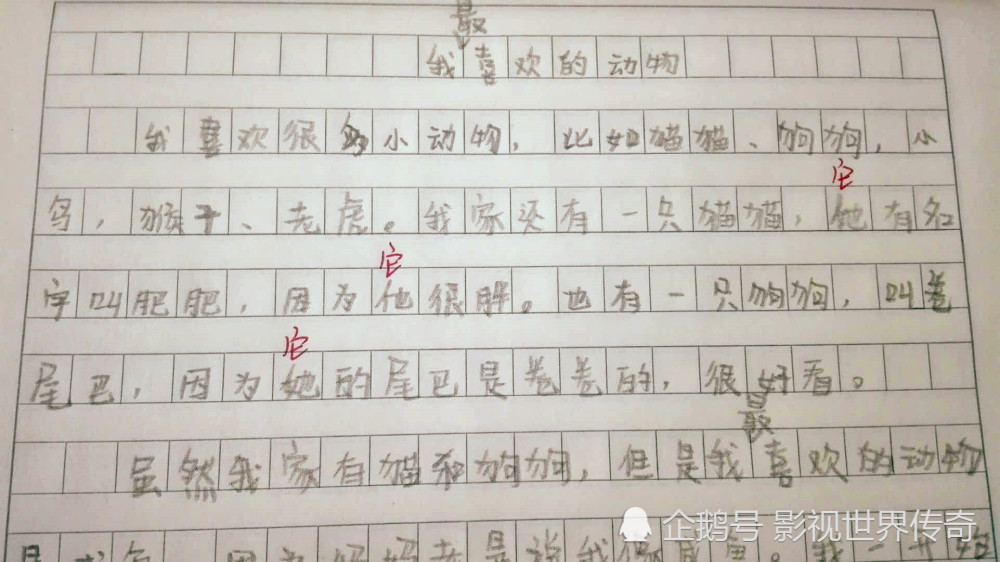 最
我喜欢的动物
我喜欢很多小动物,比如猫猫、狗狗,小
它
鸟,猴子、老虎。我家还有一只猫猫,他有名
它
字叫肥肥,因为他很胖。也有一只狗狗,叫卷
它
尾巴,因为她的尾巴是卷卷的,很好看。
最
虽然我家有猫和狗狗,但是我喜欢的动物
因为妈妈老是说我像
企鹅号 影视世界传奇